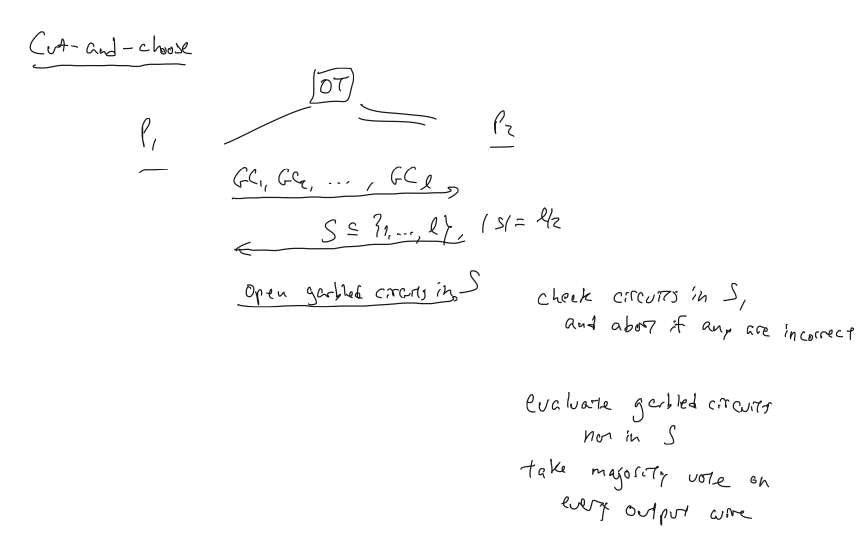 Cut-and-choose
OT
P₁
P₂
GC₁, GC₂, ..., GC_ℓ
S ⊆ {1, ..., ℓ}, |S| = ℓ/2
Open garbled circuits in S
check circuits in S,
and abort if any are incorrect
evaluate garbled circuits
not in S
take majority vote on
every output wire